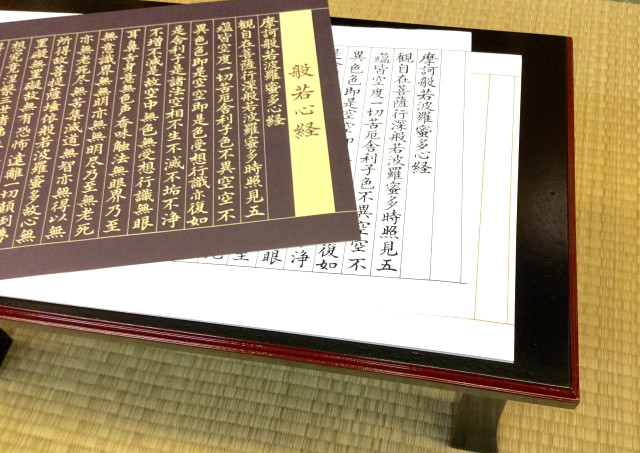 般若心経
摩訶般若波羅蜜多心経
観自在菩薩行深般若波羅蜜多時照見五
蘊皆空度一切苦厄舎利子色不異空空不
異色色即是空空即是色受想行識亦復如
是舎利子是諸法空相不生不滅不垢不浄
不増不減是故空中無色無受想行識無眼
耳鼻舌身意無色声香味触法無眼界乃至
無意識界無無明亦無無明尽乃至無老死
亦無老死尽無苦集滅道無智亦無得以無
所得故菩提薩埵依般若波羅蜜多故心無
罣礙無罣礙故無有恐怖遠離一切顛倒夢
想究竟涅槃三世諸佛
摩訶般若波羅蜜多心経
観自在菩薩行深般若波羅蜜多時照見五
蘊皆空度一切苦厄舎利子色不異空空不
異色色即是空
復如
浄
眼
至